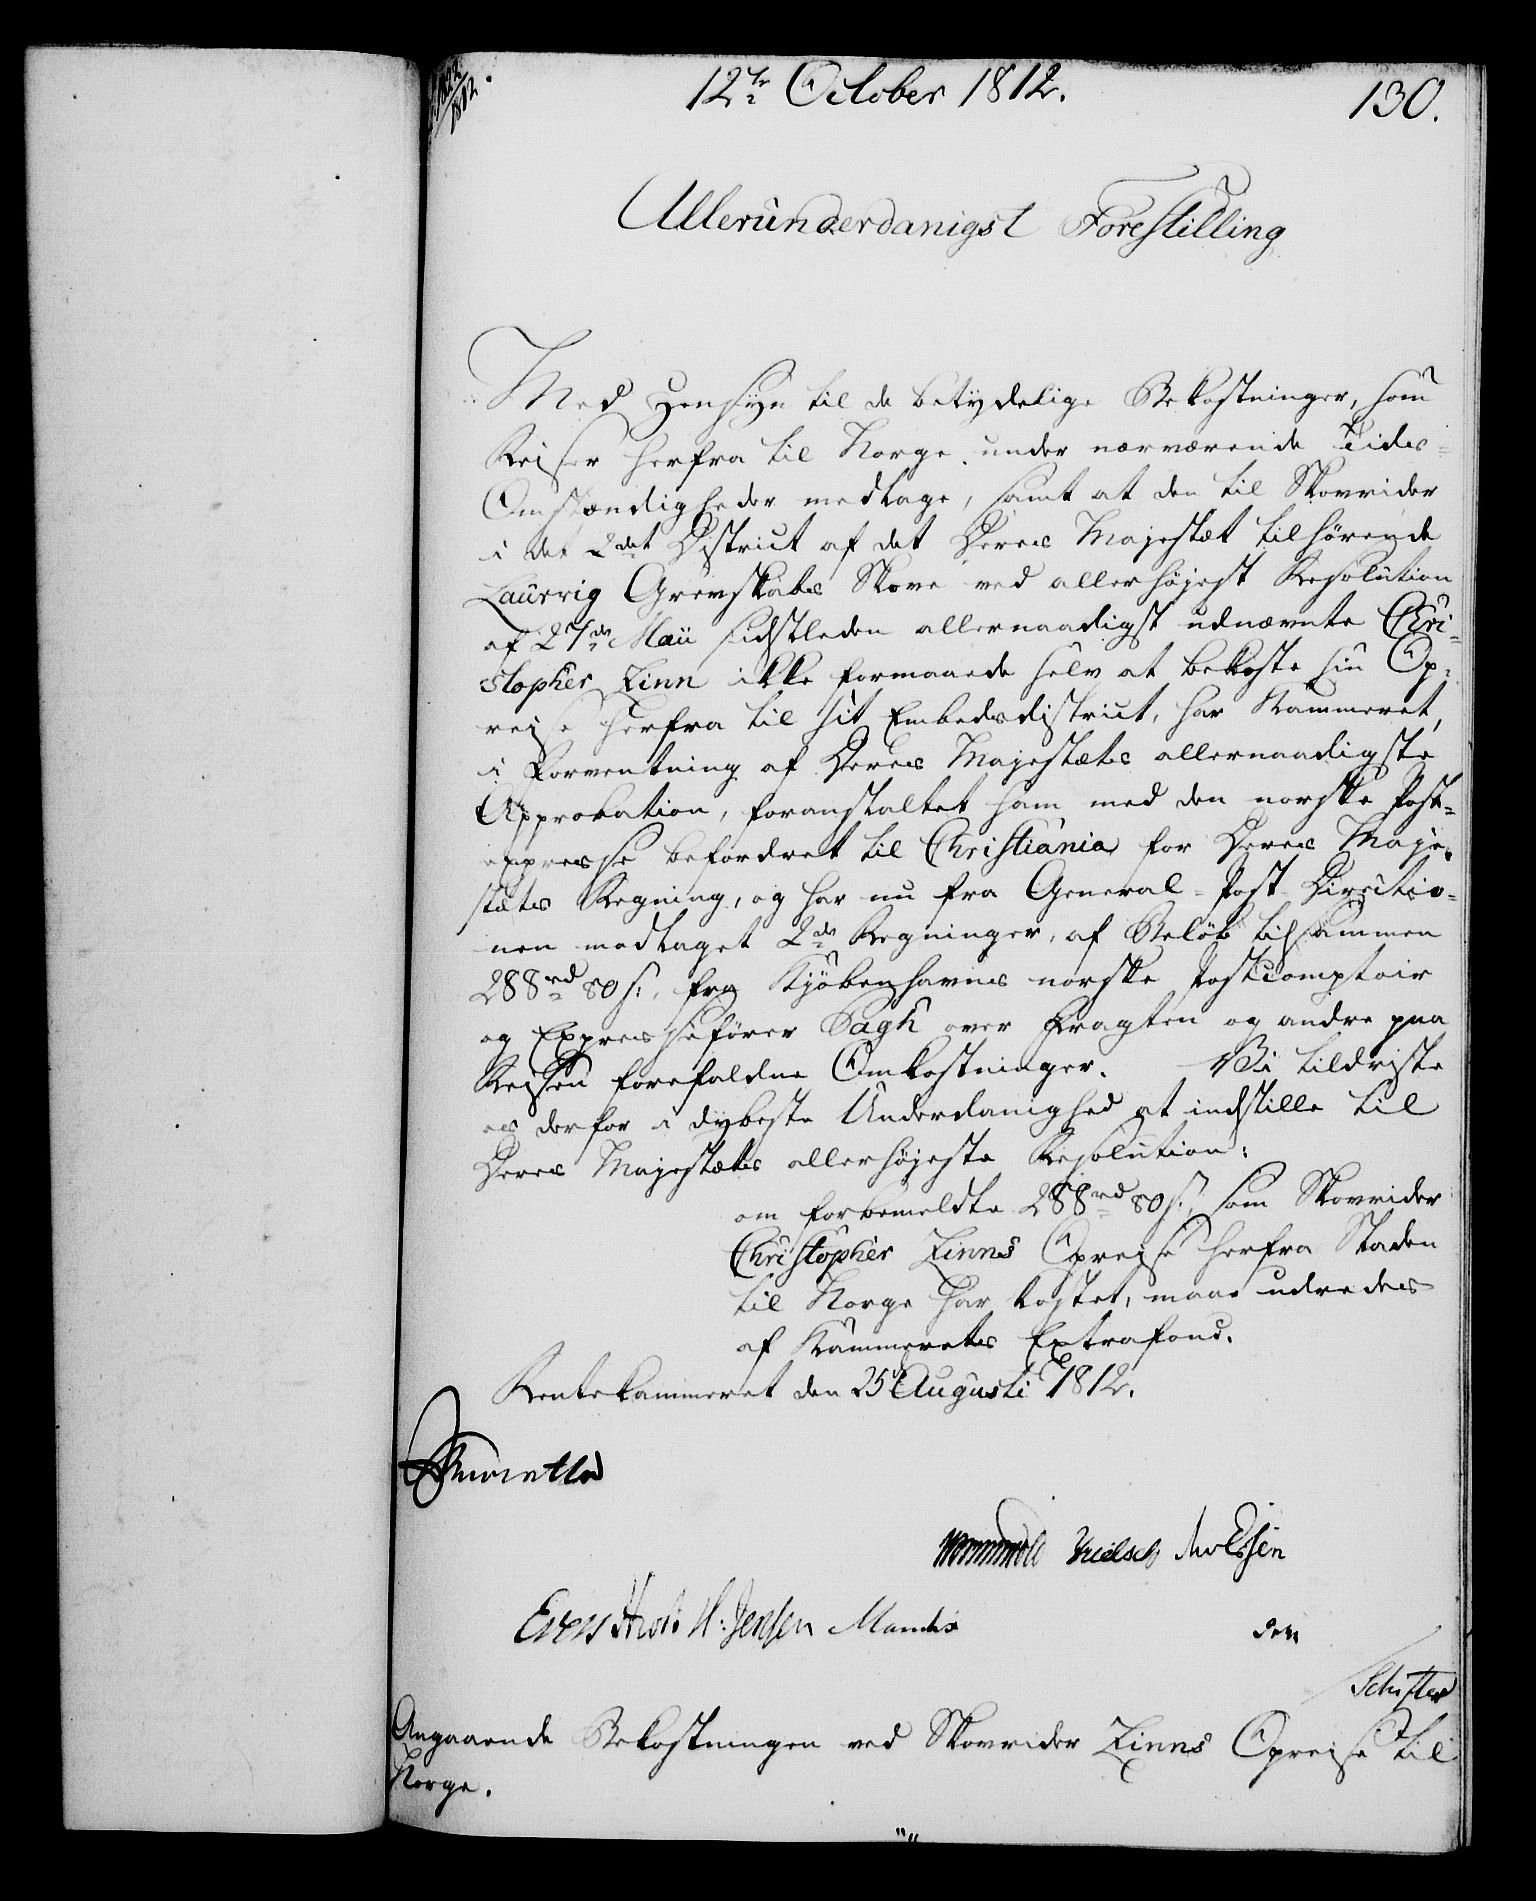 12te October 1812.
130.
1812.
Allerunderdanigst Forestilling
Med Hensyn til de betydelige Bekostninger, som
Reiser herfra til Norge under nærværende Tids-
Omstændigheder medtage, samt at den til Skovrider
i det 2det District af det Deres Majestæt tilhørende
Laurvig Grevskabs Skove ved allerhøjest Resolution
af 27de Maii sidstleden allernaadigst udnævnte Chri-
stopher Zinn ikke formaaede selv at bekoste sin Op-
reise herfra til sit Embedsdistrict, har Kammeret,
i Forventning af Deres Majestæts allernaadigste
Approbation, foranstaltet ham med den norske Post-
expresse befordret til Christiania for Deres Maje-
stæts Regning, og har nu fra General-Post-Directio-
nen modtaget 2de Regninger, af Beløb tilsammen
288rd 80 s., fra Kjøbenhavns norske Postcomptoir
og Expressefører Bagh over Fragten og andre paa
Reisen forefaldne Omkostninger. Vi tildriste
os derfor i dybeste Underdanighed at indstille til
Deres Majestæts allerhøjeste Resolution:
om forbemeldte 288rd 80 s., som Skovrider
Christopher Zinns Opreise herfra Staden
til Norge har kostet, maae udredes
af Kammerets Extrafond.
Rentekammeret den 25 Augusti 1812.
H: Jensen
Angaaende Bekostningen ved Skovrider Zinns Opreise til
Norge.